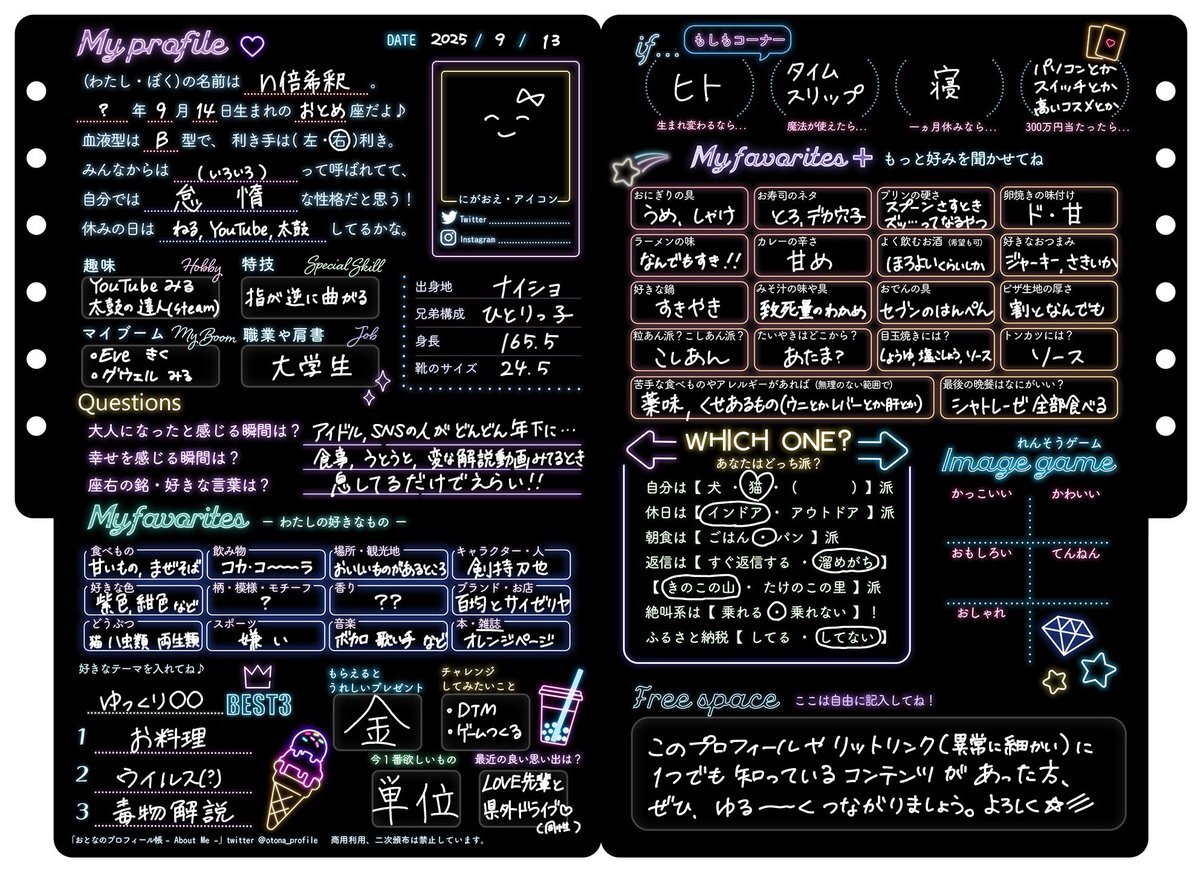 My profile
DATE 2025 / 9 / 13
(わたし・ぼく)の名前は n倍希釈 。
? 年 9 月 14 日生まれの おとめ 座だよ♪
血液型は B 型で、 利き手は( 左・右 )利き。
みんなからは (いろいろ) って呼ばれてて、
自分では 怠惰 な性格だと思う!
休みの日は ねる, YouTube, 太鼓 してるかな。
にがおえ・アイコン
Twitter
Instagram
趣味 Hobby
YouTube みる
太鼓の達人(steam)
特技 Special Skill
指が逆に曲がる
マイブーム My Boom
•Eve きく
•グウェル みる
職業や肩書 Job
大学生
出身地 ナイショ
兄弟構成 ひとりっ子
身長 165.5
靴のサイズ 24.5
Questions
大人になったと感じる瞬間は? アイドル, SNSの人がどんどん年下に…
幸せを感じる瞬間は? 食事, うとうと, 変な解説動画みてるとき
座右の銘・好きな言葉は? 息してるだけでえらい!!
My favorites ー わたしの好きなもの ー
食べもの 甘いもの, まぜそば
飲み物 コカ・コ〜〜ラ
場所・観光地 おいしいものがあるところ
キャラクター・人 剣持刀也
好きな色 紫色, 紺色 など
柄・模様・モチーフ ?
香り ??
ブランド・お店 百均とサイゼリヤ
どうぶつ 猫 ハ虫類 両生類
スポーツ 嫌い
音楽 ボカロ 歌い手 など
本・雑誌 オレンジページ
好きなテーマを入れてね♪
ゆっくり○○ BEST3
1 お料理
2 ウイルス(?)
3 毒物解説
もらえると
うれしいプレゼント
金
チャレンジ
してみたいこと
•DTM
•ゲームつくる
今1番欲しいもの
単位
最近の良い思い出は?
LOVE先輩と
県外ドライブ♡
(同性)
「おとなのプロフィール帳 - About Me -」twitter @otona_profile 商用利用、二次頒布は禁止しています。
if... もしもコーナー
ヒト
生まれ変わるなら...
タイム
スリップ
魔法が使えたら...
寝
一ヵ月休みなら...
パソコンとか
スイッチとか
高いコスメとか
300万円当たったら...
My favorites + もっと好みを聞かせてね
おにぎりの具 うめ, しゃけ
お寿司のネタ とろ, デカ穴子
プリンの硬さ スプーンさすとき
ズッ…ってなるやつ
卵焼きの味付け ド・甘
ラーメンの味 なんでもすき!!
カレーの辛さ 甘め
よく飲むお酒 (希望も可) ほろよいくらいしか
好きなおつまみ ジャーキー, さきいか
好きな鍋 すきやき
みそ汁の味や具 致死量のわかめ
おでんの具 セブンのはんぺん
ピザ生地の厚さ 割となんでも
粒あん派?こしあん派? こしあん
たいやきはどこから? あたま?
目玉焼きには? しょうゆ, 塩こしょう, ソース
トンカツには? ソース
苦手な食べものやアレルギーがあれば (無理のない範囲で) 薬味, くせあるもの(ウニとかレバーとか肝とか)
最後の晩餐はなにがいい? シャトレーゼ 全部食べる
WHICH ONE?
あなたはどっち派?
自分は【 犬 ・ 猫 ・ ( ) 】派
休日は【 インドア ・ アウトドア 】派
朝食は【 ごはん ・ パン 】派
返信は【 すぐ返信する ・ 溜めがち 】
【 きのこの山 ・ たけのこの里 】派
絶叫系は【 乗れる ・ 乗れない 】!
ふるさと納税【 してる ・ してない 】
れんそうゲーム
Image game
かっこいい かわいい
おもしろい てんねん
おしゃれ
Free space ここは自由に記入してね!
このプロフィールや リットリンク(異常に細かい)に
1つでも 知っている コンテンツ が あった方、
ぜひ、ゆる〜〜く つながりましょう。よろしく☆彡